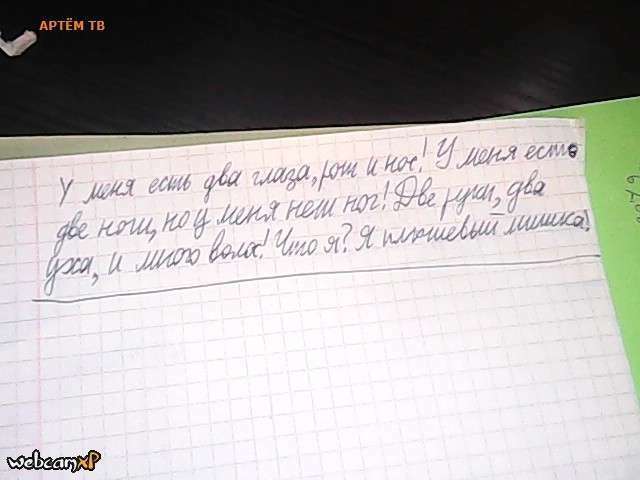 АРТЁМ ТВ
У меня есть два глаза, рот и нос! У меня есть
две ноги, но у меня нет ног! Две руки, два
уха, и много волос! Что я? Я плюшевый мишка!
webcamXP